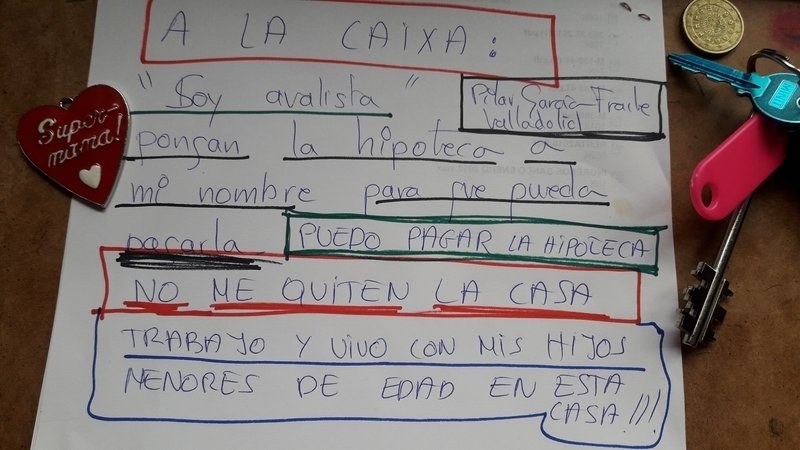 A LA CAIXA:
"Soy avalista"
Pilar García Fraile
Valladolid
pongan la hipoteca a
mi nombre para que pueda
pagarla
PUEDO PAGAR LA HIPOTECA
NO ME QUITEN LA CASA
TRABAJO Y VIVO CON MIS HIJOS
MENORES DE EDAD EN ESTA
CASA!!!
Super-
mamá!